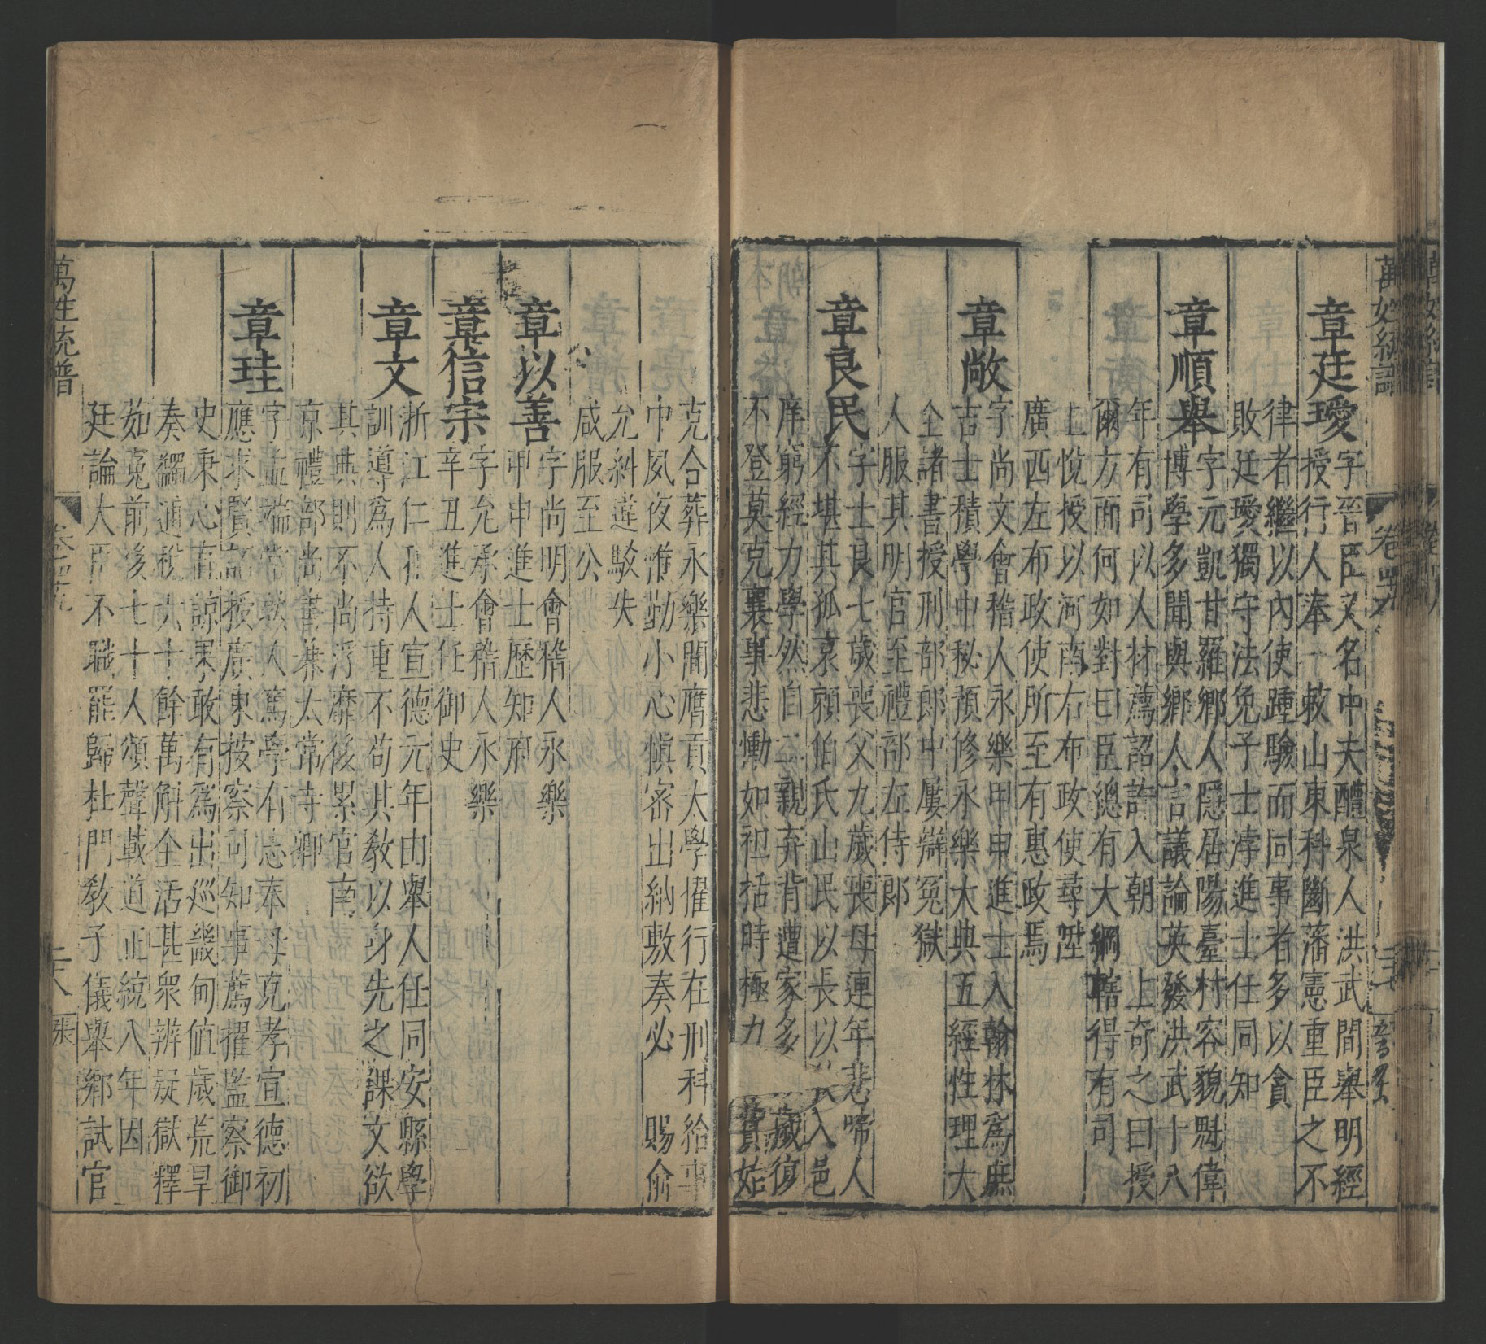 萬姓統譜
卷四九
章廷璦字晉臣又名中夫醴泉人洪武間舉明經
授行人奉敕山東科斷藩憲重臣之不
律者繼以內使踵驗而同事者多以貪
敗廷璦獨守法免子士淳進士任同知
章順舉字元凱甘羅鄉人隱居陽臺村容貌魁偉
博學多聞與鄉人言議論英發洪武十八
年有司以人材薦詔許入朝 上奇之曰授
爾方面何如對曰臣總有大綱轄得有司
上悅授以河南右布政使尋陞
廣西左布政使所至有惠政焉
章敞字尚文會稽人永樂甲申進士入翰林為庶
吉士積學中秘預修永樂大典五經性理大
全諸書授刑部郎中屢辯冤獄
人服其明官至禮部左侍郎
章良民字士良七歲喪父九歲喪母連年悲啼人
不堪其孤哀願伯氏山民以長以 入邑
庠窮經力學然自 二親弃背遭家多 藏復
不登莫克襄事悲慟如袒括時極力 貲始
克合葬永樂間膺貢太學擢行在刑科給事
中夙夜惟勤小心慎密出納敷奏必 賜俞
允糾違駁失
咸服至公
章以善字尚明會稽人永樂
甲申進士歷知府
章信宗字允承會稽人永樂
辛丑進士任御史
章文浙江仁和人宣德元年由舉人任同安縣學
訓導為人持重不苟其教以身先之課文欲
其典則不尚浮靡後累官南
京禮部尚書兼太常寺卿
章珪字孟端常熟人篤學有志奉母克孝宣德初
應求賢詔授廣東按察司知事薦擢監察御
史秉心直諒果敢有為出巡畿甸值歲荒旱
奏蠲逋租九十餘萬斛全活甚眾辨疑獄釋
茹冤前後七十人頌聲載道正統八年因
廷論大臣不職罷歸杜門敎子儀舉鄉試官
萬姓統譜
卷四九
二八